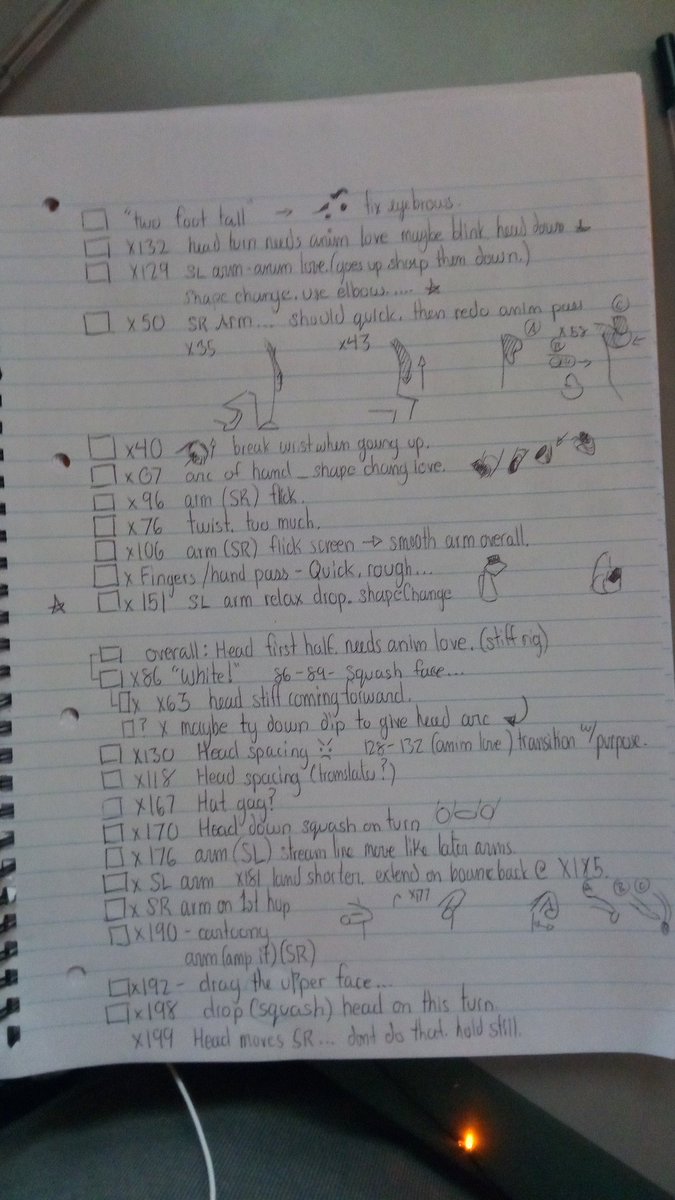 "two foot tall" → fix eyebrows.
X132 head turn needs anim love maybe blink head down
X129 SL arm-anim love. (goes up sharp them down.)
shape change. use elbow.....
X50 SR Arm... should quick. then redo anim pass
X35 X43 A X52 B C
X40 break wrist when going up.
X67 arc of hand_shape chang love.
X96 arm (SR) flick.
X76 twist. too much.
X106 arm (SR) flick screen → smooth arm overall.
X Fingers/hand pass - Quick, rough...
X151 SL arm relax drop. shapeChange
overall: Head first half. needs anim love. (stiff rig)
X86 "White!" 86-89- squash face...
X X63 head stiff coming forward.
? X maybe ty down dip to give head arc
X130 Head spacing 128-132 (anim love) transition w/purpose.
X118 Head spacing (translate?)
X167 Hat gag?
X170 Head down squash on turn
X176 arm (SL) stream line move like later arms.
X SL arm X181 land shorter. extend on bounce back @ X185.
X SR arm on 1st hop X177 A B C
X190 - cartoony
arm (amp it) (SR)
X192 - drag the upper face...
X198 drop (squash) head on this turn.
X199 Head moves SR... dont do that. hold still.